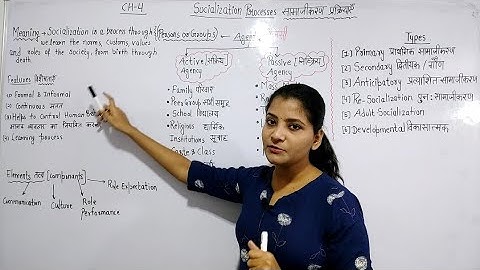 CH-4
Socialization Processes सामाजीकरण प्रक्रियाएँ
Meaning → Socialization is a process through
we learn the norms, customs, values
and roles of the society, from birth through
death.
(Persons or Groups) ← Agent
Features विशेषताएँ
(1) Formal & Informal
(2) Continuous सतत
(3) Helps to Control Human
(4) Learning process
Elements तत्व (Components)
Communication
Culture
Role
Performance
Role Expectation
Active (सक्रिय)
Agency
• Family परिवार
• Peer Group साथी समूह
• School विद्यालय
• Religions धार्मिक
Institutions
& Class
Passive (निष्क्रिय)
Agency
Types
(1) Primary प्राथमिक सामाजीकरण
(2) Secondary द्वितीयक / गौण
(3) Anticipatory प्रत्याशित सामाजीकरण
(4) Re-Socialization पुनः सामाजीकरण
(5) Adult Socialization
(6) Developmental विकासात्मक